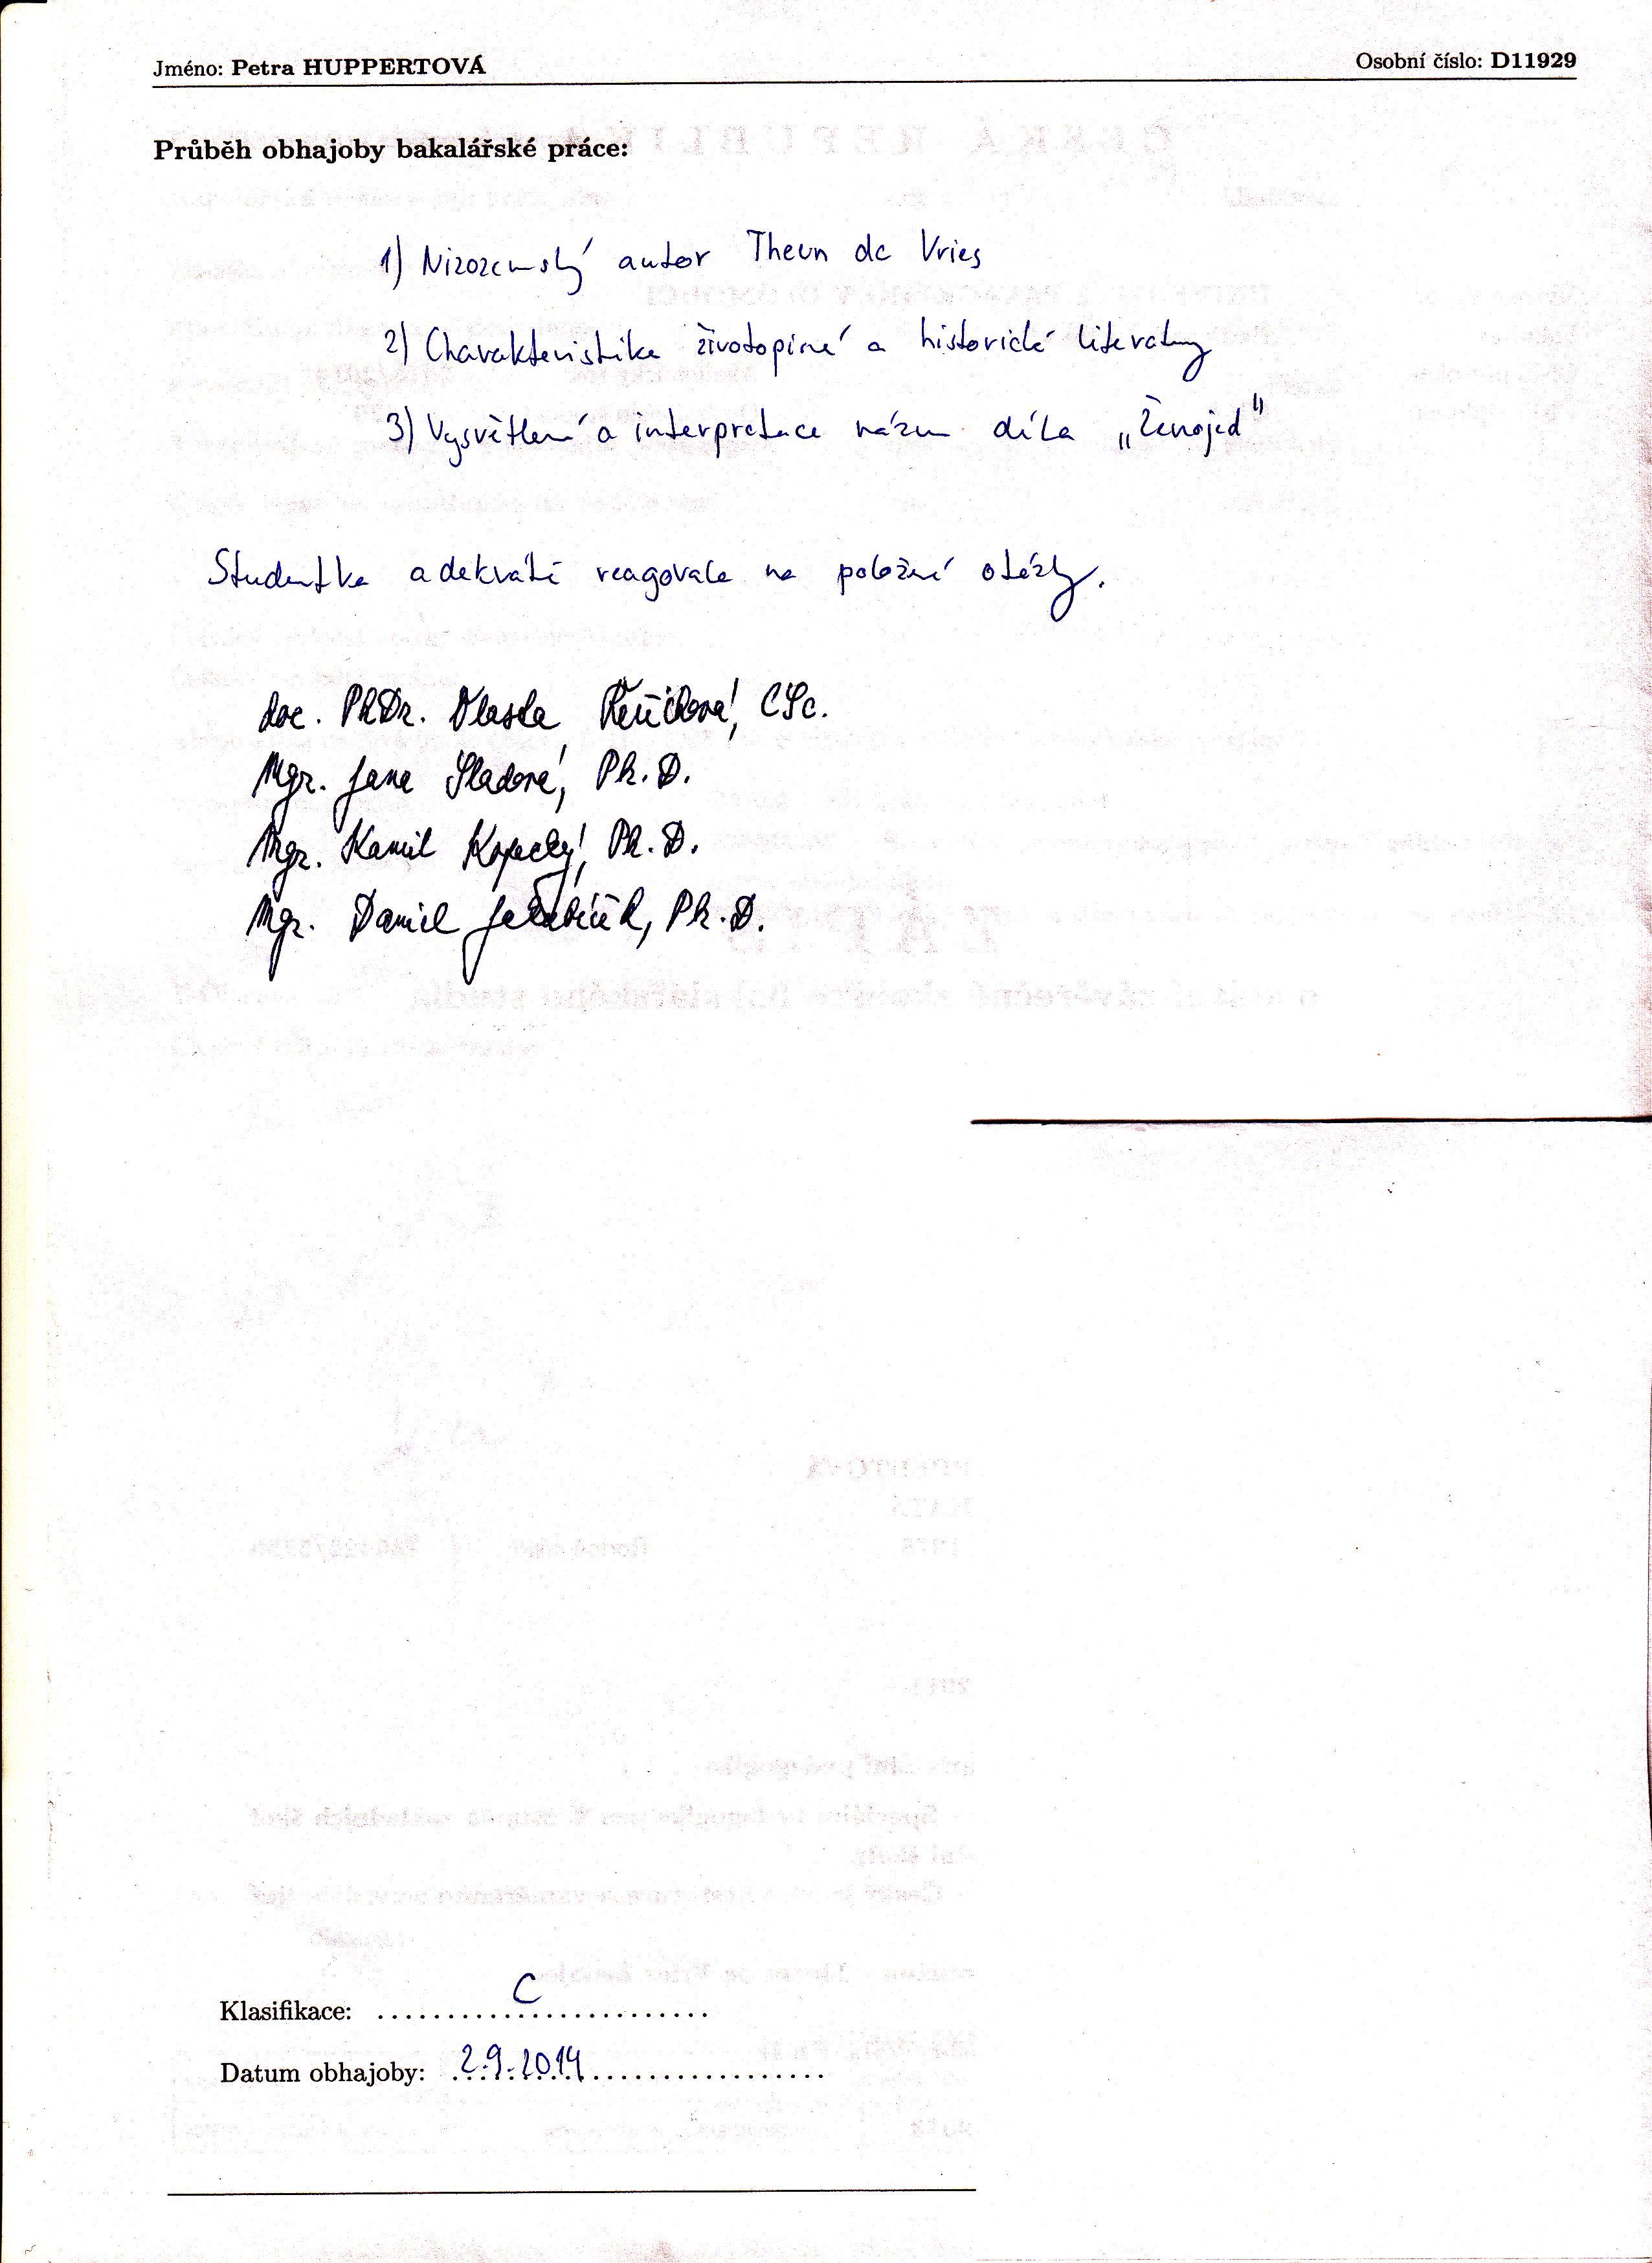 Jméno: Petra HUPPERTOVÁ Osobní číslo: D11929
Průběh obhajoby bakalářské práce:
1) Nizozemský autor Theun de Vries
2) Charakteristika životopisné a historické literatury
3) Vysvětlení a interpretace názvu díla „Ženojed"
Studentka adekvátně reagovala na položené otázky.
doc. PhDr. Vlasta Řeřichová, CSc.
Mgr. Jana Sladová, Ph.D.
Mgr. Kamil Kopecký, Ph.D.
Mgr. Daniel Jakubíček, Ph.D.
Klasifikace: C
Datum obhajoby: 2.9.2014